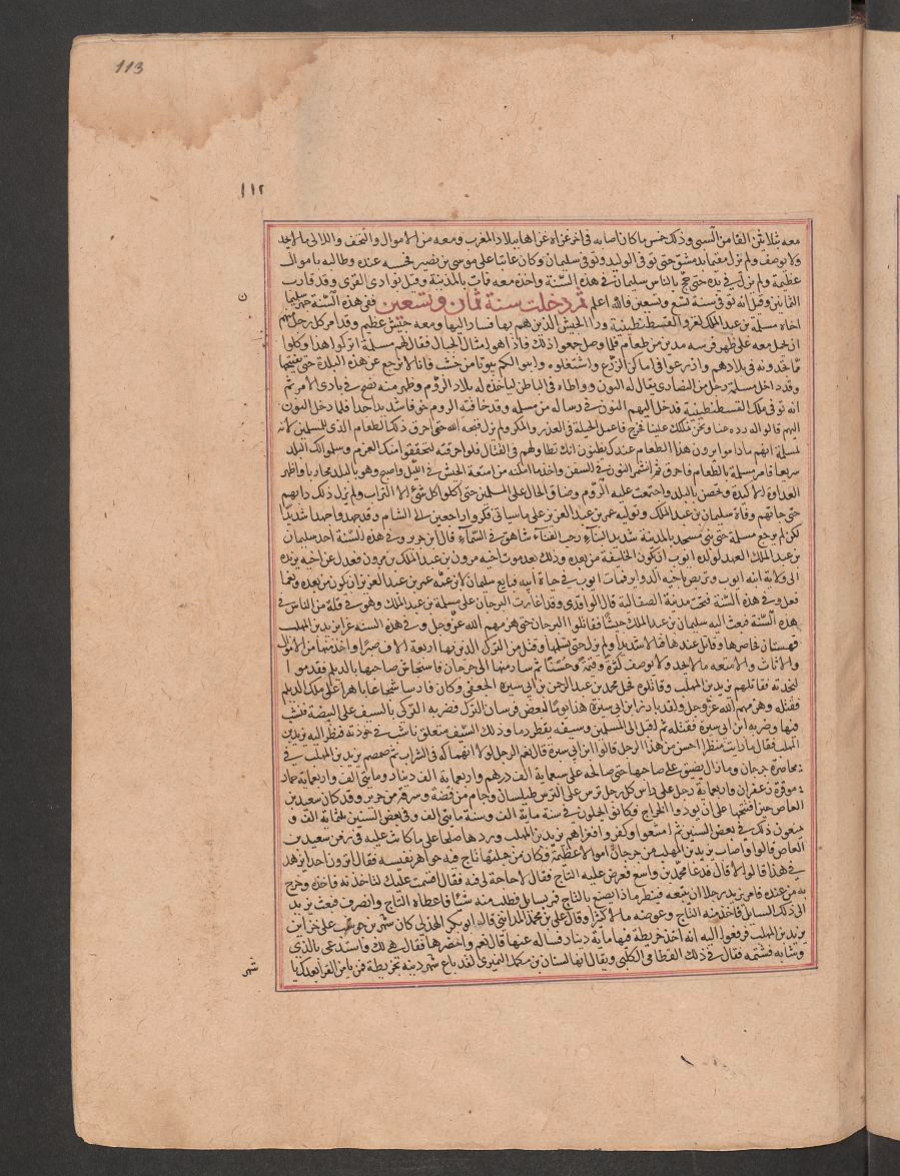 113
١١٢
معه بثلاثين الفا من السبى وذلك خمس ما كان اصابه فى اخر غزاة غزاها ببلاد المغرب ومعه من الاموال والتحف واللالى ما لا يحد
ولا يوصف ولم يزل مقيما بدمشق حتى توفى الوليد وتولى سليمان وكان عاتبا على موسى بن نصير فحبسه عنده وطالبه باموال
عظيمة ولم يزل فى يده حتى حج بالناس سليمان فى هذه السنة واخذه معه فمات بالمدينة وقيل بوادى القرى وقد قارب
الثمانين وقيل انه توفى سنة تسع وتسعين والله اعلم ثم دخلت سنة ثمان وتسعين ففى هذه السنة جهز سليمان
اخاه مسلمة بن عبد الملك لغزو القسطنطينية ورا الجيش الذين هم بها فسار اليها ومعه جيش عظيم وقد امر كل رجل منهم
ان يحمل معه على ظهر فرسه مدين من طعام فلما وصل جمعوا ذلك فاذا هو امثال الجبال فقال لهم مسلمة اتركوا هذا وكلوا
مما تجدونه فى بلادهم وازرعوا فى اماكن الزرع واشتغلوه وابنوا لكم بيوتا من خشب فانا لا نرجع عن هذه البلدة حتى نفتحها
وقد داخل مسلمة رجل من النصارى يقال له اليون وواطاه فى الباطن لياخذ له بلاد الروم وظهر منه نصح فى بادى الامر ثم
انه توفى ملك القسطنطينية فدخل اليهم اليون فى رسالة من مسلمة وقد خافته الروم خوفا شديدا جدا فلما دخل اليون
اليهم قالوا له رده عنا ونحن نملكك علينا فخرج فاعمل الحيلة فى الغدر والمكر ولم يزل قبحه الله حتى احرق ذلك الطعام الذى للمسلمين لانه
لمسلمة انهم ما داموا يرون هذا الطعام عندك يظنون انك تطاولهم فى القتال فلو احرقته لتحققوا منك العزم وسلموا لك البلد
سريعا فامر مسلمة بالطعام فاحرق ثم انشمر اليون فى السفن واخذ ما امكنه من امتعة الجيش فى الليل واصبح وهو بالبلد محاربا واظهر
العداوة الاكيدة وتحصن بالبلد واجتمعت عليه الروم وضاق الحال على المسلمين حتى اكلوا كل شئ الا التراب ولم يزل ذلك دابهم
حتى جاتهم وفاة سليمان بن عبد الملك وتولية عمر بن عبد العزيز على ما سياتى فكروا راجعين الى الشام وقد جهدوا جهدا شديدا
لكن لم يرجع مسلمة حتى بنى مسجد بالمدينة شديد البناء رحب الفناء شاهق فى السماء قال ابن جرير وفى هذه السنة اخذ سليمان
بن عبد الملك العهد لولده ايوب ان يكون الخليفة من بعده وذلك بعد موت اخيه مرون بن عبد الملك بن مرون فعدل عن اخيه يزيد
الى ولاية ابنه ايوب وتربص باخيه الدواير فمات ايوب فى حياة ابيه فبايع سليمان لابن عمه عمر بن عبد العزيز ان يكون من بعده ونعما
فعل وفى هذه السنة فتحت مدينة الصقالبة قال الواقدى وقد اغارت البرجان على مسلمة بن عبد الملك وهو فى قلة من الناس فى
هذه السنة فبعث اليه سليمان بن عبد الملك جيشا فقاتلوا البرجان حتى هزمهم الله عز وجل وفى هذه السنة غزا يزيد بن المهلب
قهستان فحاصرها وقاتل عندها قتالا شديدا ولم يزل حتى تسلمها وقتل من الترك الذين بها اربعة الاف صبرا واخذ منها من الاموال
والاثاث والامتعة ما لا يحد ولا يوصف كثرة وقيمة وحسنا ثم سار منها الى جرجان فاستجاش صاحبها بالديلم فقدموا
لنجدته فقاتلهم يزيد بن المهلب وقاتلوه فحمل محمد بن عبد الرحمن بن ابى سبرة الجعفى وكان فارسا شجاعا باهرا على ملك الديلم
فقتله وهزمهم الله عز وجل ولقد بارز ابن ابى سبرة هذا يوما لبعض فرسان الترك فضربه التركى بالسيف على البيضة فنشب
فيها وضربه ابن ابى سبرة فقتله ثم اقبل الى المسلمين وسيفه يقطر دما وذلك السيف متعلق ناشب فى خوذته فنظر اليه يزيد بن
المهلب فقال ما رايت منظرا احسن من هذا من هذا الرجل قالوا ابن ابى سبرة قال نعم الرجل لولا انهماكه فى الشراب ثم صمم يزيد بن المهلب فى
محاصرة جرجان وما زال يضيق على صاحبها حتى صالحه على سبعماية الف درهم واربعماية الف دينار ومايتى الف ثوب واربعماية حمار
موقرة زعفران واربعماية رجل على راس كل رجل ترس على الترس طيلسان وجام من فضة وسرقة من حرير وقد كان سعيد بن
العاص حين افتتحها على ان يودوا الخراج فكانوا يحملون فى سنة ماية الف وسنة مايتى الف وفى بعض السنين ثلثماية الف و
يمنعون ذلك فى بعض السنين ثم امتنعوا وكفروا فغزاهم يزيد بن المهلب وردها صلحا على ما كانت عليه فى زمن سعيد بن
العاص قالوا واصاب يزيد بن المهلب من جرجان اموالا عظيمة وكان من جملتها تاج فيه جواهر نفيسه فقال اترون احدا يزهد
فى هذا قالوا لا قال فدعا محمد بن واسع فعرض عليه التاج فقال لا حاجة لى فيه فقال اقسمت عليك لتاخذنه فاخذه وخرج
به من عنده فامر يزيد رجلا ان يتبعه فينظر ماذا يصنع بالتاج فمر بسايل فطلب منه شيا فاعطاه التاج وانصرف فبعث يزيد
الى ذلك السايل فاخذ منه التاج وعوضه مالا كثيرا وقال على بن محمد المداينى قال ابو بكر الهذلى كان شهر بن حوشب على خزاين
يزيد بن المهلب فرفعوا اليه انه اخذ خريطة فيها ماية دينار فساله عنها قال نعم واحضرها فقال هى لك فاستدعى بالذى
وشا به فشتمه فقال فى ذلك القطامى الكلبى ويقال انها لسنان بن مكمل النميرى لقد باع شهر دينه بخريطة فمن يامن القرا بعدك يا
شهر